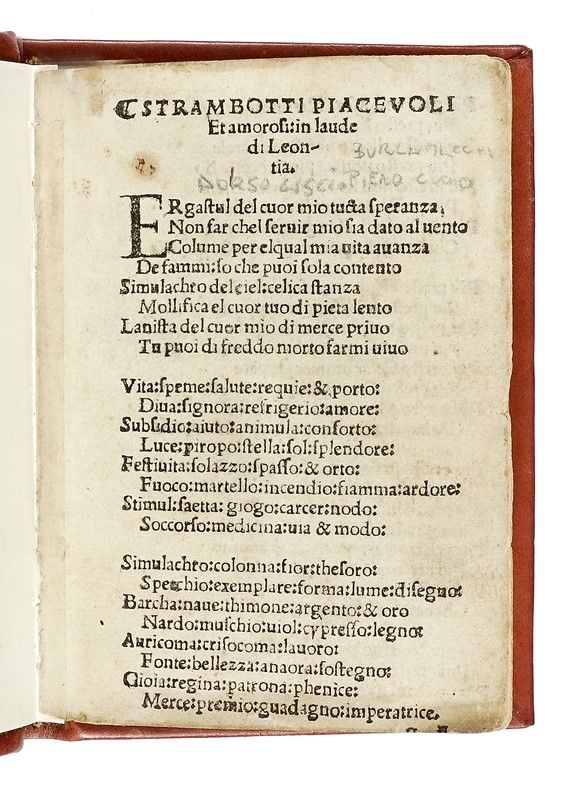 STRAMBOTTI PIACEVOLI
Et amorosi:in laude
di Leon-
tia.
ERgastul del cuor mio tucta speranza,
Non far chel seruir mio sia dato al uento
Colume per elqual mia uita auanza
De fammi:so che puoi sola contento
Simulachro del ciel:celica stanza
Mollifica el cuor tuo di pieta lento
Lanista del cuor mio di merce priuo
Tu puoi di freddo morto farmi uiuo
Vita:speme:salute:requie:& porto:
Diua:signora:refrigerio:amore:
Subsidio:aiuto:animula:conforto:
Luce:piropo:stella:sol:splendore:
Festiuita:solazzo:spasso:& orto:
Fuoco:martello:incendio:fiamma:ardore:
Stimul:saetta:giogo:carcer:nodo:
Soccorso:medicina:uia & modo:
Simulachro:colonna:fior:thesoro:
Spechio:exemplare:forma:lume:disegno:
Barcha:naue:thimone:argento:& oro
Nardo:muschio:uiol:cypresso:legno:
Auricoma:crisocoma:lauoro:
Fonte:bellezza:anaora:sostegno:
Gioia:regina:patrona:phenice:
Merce:premio:guadagno:imperatrice.